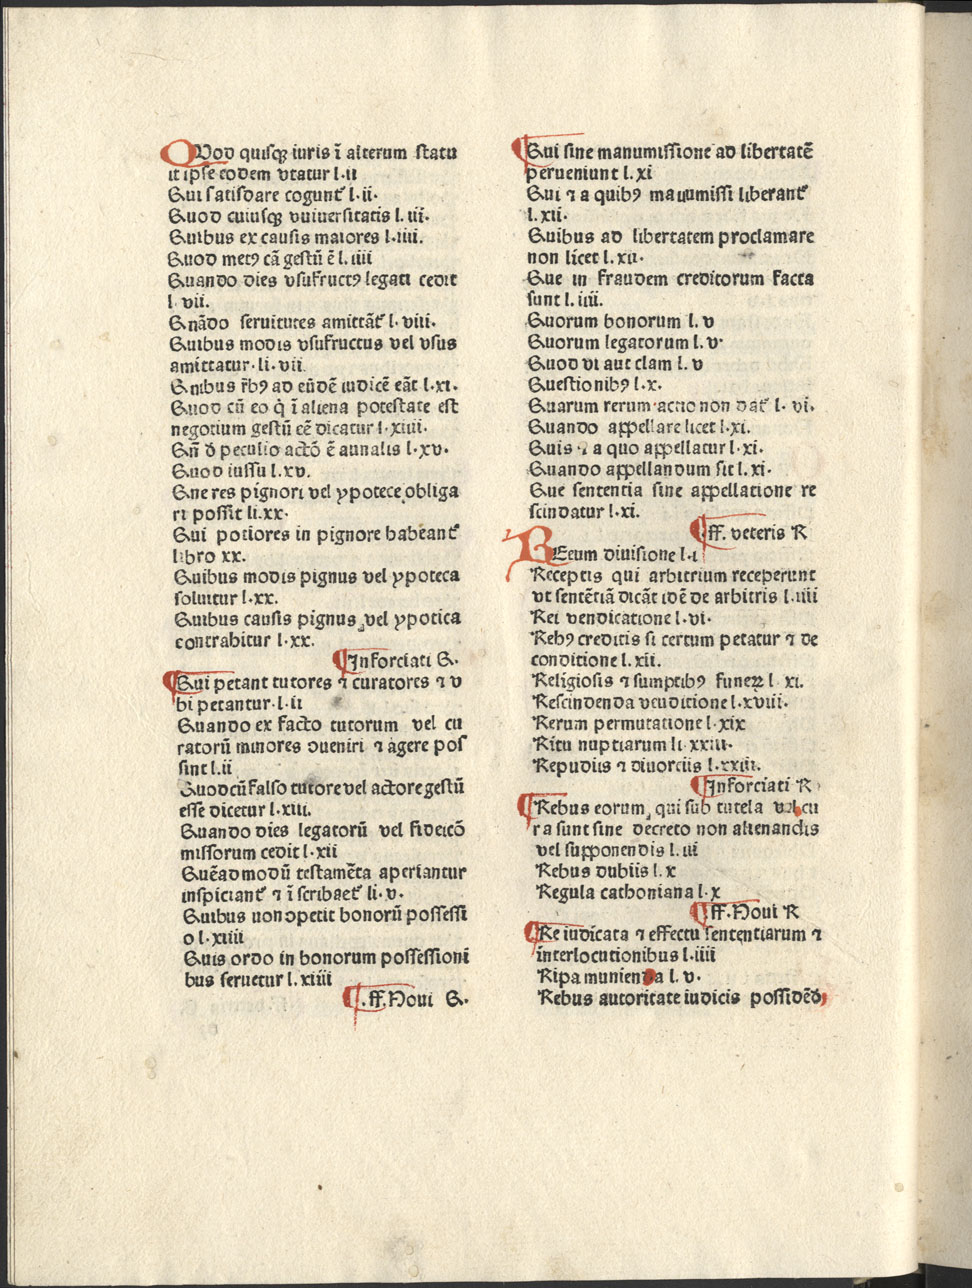 QVod quisqꝫ iuris ī alterum statu
it ipse eodem vtatur l·ii
Qui satisdare cogunt̉ l·ii·
Quod cuiusqꝫ vuiuersitatis l. iii·
Quibus ex causis maiores l·iiii.
Quod metꝰ cā gestū ē l. iiii
Quando dies vsufructꝰ legati cedit
l· vii.
Qnādo seruitutes amittāt̉ l· viii.
Quibus modis vsufructus vel vsus
amittatur· li· vii.
Qnibus r̄bꝰ ad eūdē iudicē eāt̉ l·xi.
Quod cū eo q̇ ī aliena potestate est
negotium gestū eē dicatur l·xiiii.
Qn̄ đ peculio actō ē aunalis l·xv.
Quod iussu l.xv.
Qne res pignori vel ypotece obliga
ri possit li.xx·
Qui potiores in pignore babeant̉
libro xx.
Quibus modis pignus vel ypoteca
soluitur l·xx.
Quibus causis pignus vel ypotica
contrabitur l·xx.
¶Inforciati Q.
¶Qui petant tutores ⁊ curatores ⁊ v
bi petantur·l·ii
Quando ex facto tutorum vel cu
ratorū minores ɔueniri ⁊ agere pos
sint l.ii
Quodcūfalso tutore vel actore gestū
esse dicetur l·xiii.
Quando dies legatorū vel fideicō
missorum cedit l·xii
Quēadmodū testamēta aperiantur
inspiciant̉ ⁊ ī scribāet̉ li· v·
Quibus uon ɔpetit bonorū possessi
o l·xiiii
Quis ordo in bonorum possessioni
bus seruetur l.xiiii
¶.ff.Noui Q.
¶Qui sine manumissione ad libertatē
perueniunt l.xi
Qui ⁊ a quibꝰ mauumissi liberant̉
l.xii·
Quibus ad libertatem proclamare
non licet l.xii·
Que in fraudem creditorum facta
sunt l. iiii.
Quorum bonorum l. v
Quorum legatorum l. v·
Quod vi aut clam l. v
Questionibꝰ l·x.
Quarum rerum actio non dat̉ l· vi.
Quando appellare licet l·xi.
Quis ⁊ a quo appellatur l·xi.
Quando appellandum sit l.xi·
Que sententia sine appellatione re
scindatur l·xi.
¶.ff. veteris R
REeum diuisione l·i
Receptis qui arbitrium receperunt
vt sentētiā dicāt idē de arbitris l.iiii
Rei vendicatione l·vi·
Rebꝰ creditis si certum petatur ⁊ de
conditione l.xii.
Religiosis ⁊ sumptibꝰ funeꝝ l xi.
Rescindenda veuditione l·xviii·
Rerum permutatione l·xix
Ritu nuptiarum li xxiii·
Repudiis ⁊ diuorciis l·xxiiii.
¶Inforciati R
¶Rebus eorum qui sub tutela vel cu
ra sunt sine decreto non alienandis
vel supponendis l. iii
Rebus dubiis l. x
Regula cathoniana l·x
¶ff.Noui R
¶Re iudicata ⁊ effectu sententiarum ⁊
interlocutionibus l.iiii
Ripa munienda l. v.
Rebus autoritate iudicis possidēd,